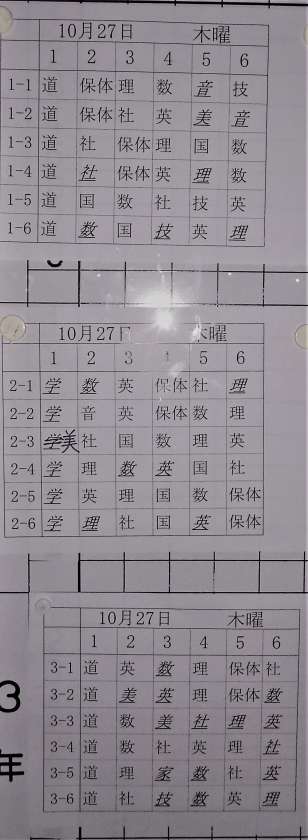 10月27日 木曜
1 2 3 4 5 6
1-1 道 保体 理 数 音 技
1-2 道 保体 社 英 美 音
1-3 道 社 保体 理 国 数
1-4 道 社 保体 英 理 数
1-5 道 国 数 社 技 英
1-6 道 数 国 技 英 理
10月27日 木曜
1 2 3 4 5 6
2-1 学 数 英 保体 社 理
2-2 学 音 英 保体 数 理
2-3 学 美 社 国 数 理 英
2-4 学 理 数 英 国 社
2-5 学 英 理 国 数 保体
2-6 学 理 社 国 英 保体
3年
10月27日 木曜
1 2 3 4 5 6
3-1 道 英 数 理 保体 社
3-2 道 美 英 理 保体 数
3-3 道 数 美 社 理 英
3-4 道 数 社 英 理 社
3-5 道 理 家 数 社 英
3-6 道 社 技 数 英 理